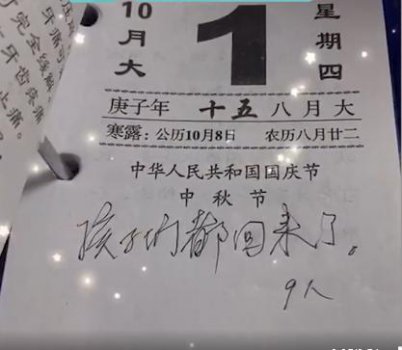 10月大
1
星期四
庚子年 十五 八月大
寒露：公历10月8日 农历八月廿二
中华人民共和国国庆节
中秋节
孩子们都回来了。
9人